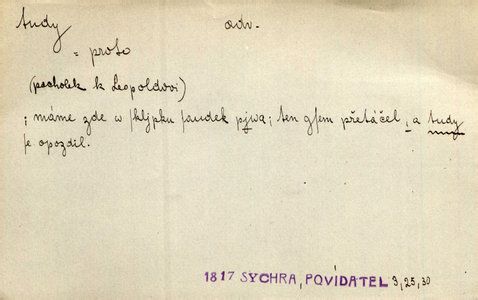 tudy adv.
= proto
(pacholek k Leopoldovi)
; máme zde w skljpku saudek pjwa; ten gsem přetáčel, a tudy
se opozdil.
1817 SYCHRA, POVÍDATEL 3, 25, 30